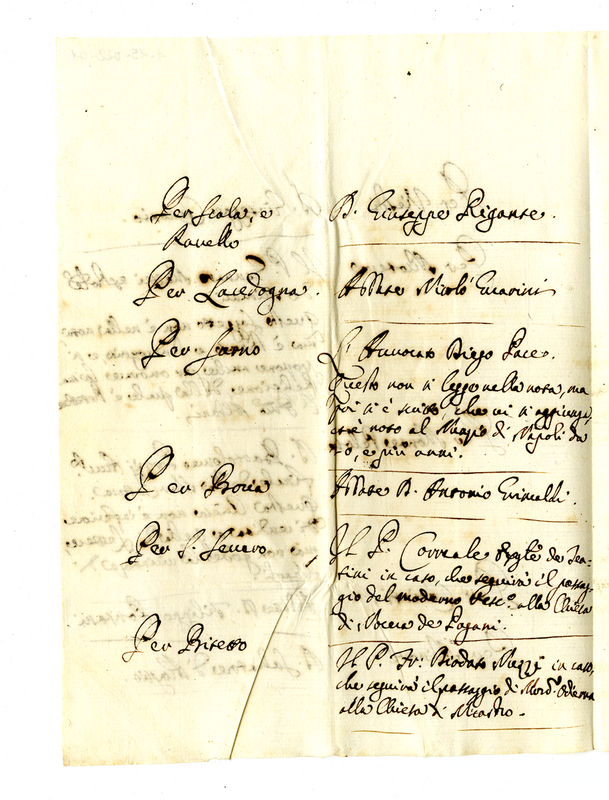 Per Scala, e
Ravello
D. Giuseppe Rigante.
Per Lacedogna.
Abbate Nicolò
Per Sarno
L' Avvocato Diego Pace.
Questo non si legge nella nota, ma
poi si è scritto, che vi si aggiunga,
noto al Nunzio di Napoli da
10, e più anni.
Per Bova
Abbate D. Antonio Grimaldi.
Per S. Severo
Il P. Correale de Tea-
tini in caso, che seguirà il passag-
gio del moderno Vesc.o alla Chiesa
di Nocera de Pagani.
Per Bitetto
Il P. Fr. Diodato in caso,
che seguirà il passaggio di Mons.r
alla Chiesa di Nicastro.